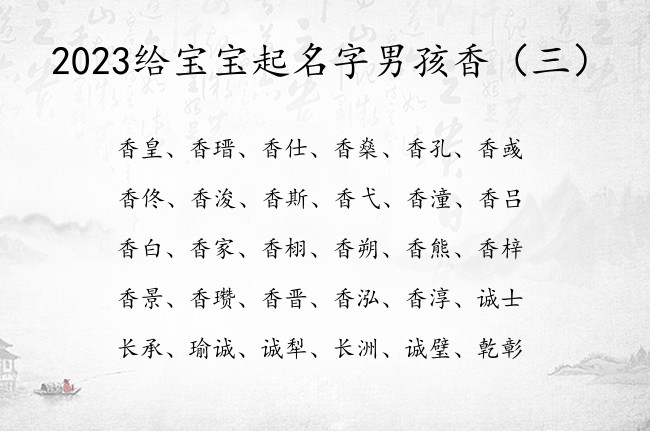 2023给宝宝起名字男孩香（三）
香皇、香瑨、香仕、香燊、香孔、香彧
香佟、香浚、香斯、香弋、香潼、香吕
香白、香家、香栩、香朔、香熊、香梓
香景、香瓒、香晋、香泓、香淳、诚士
长承、瑜诚、诚犁、长洲、诚璧、乾彰